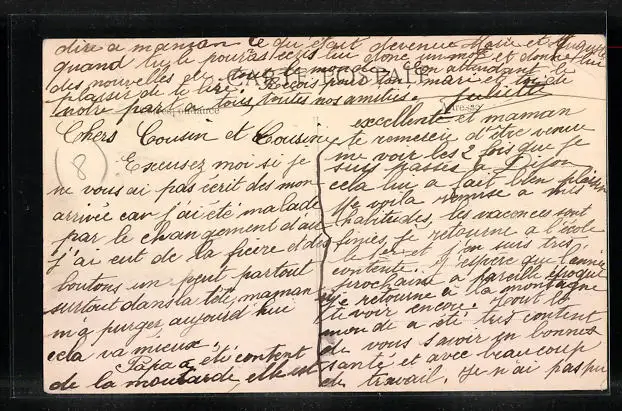 Chers Cousin et Cousine
Excusez moi si je
ne vous ai pas écrit dès mon
arrivée car j'ai été malade
par le changement d'air
j'ai eut de la fièvre et des
boutons un peut partout
surtout dans la tête, maman
m'a purger, aujourd'hui
cela va mieux.
Papa a été content
de la moutarde, elle est
excellente et maman
te remercie d'être venue
me voir les 2 fois que je
suis passée à Dijon
cela lui a fait bien plaisir
Me voilà remise à mes
habitudes, les vacances sont
finies, je retourne à l'école
le 1er et j'en suis très
contente. J'espère que l'année
prochaine à pareille époque
je retourne à la montagne
te voir encore. Tout le
monde a été très content
de vous savoir en bonne
santé et avec beaucoup
de travail. Je n'ai pas pu
dire à maman ce qu'était devenue Marie et
quand tu le pourras écris lui donc un mot et donne lui
des nouvelles de tout le monde. En attendant le
plaisir de te lire, Reçois pour ton mari et toi de
notre part à tous, toutes nos amitiés. Juliette
CARTE POSTALE
Correspondance
Adresse
8